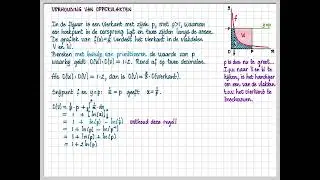 VERHOUDING VAN OPPERVLAKTEN
In de figuur is een vierkant met zijde p, met p>1, waarvan
een hoekpunt in de oorsprong ligt en twee zijden langs de assen.
De grafiek van f(x)=1/x verdeelt het vierkant in de vlakdelen
V en W.
Bereken met behulp van primitiveren de waarde van p
waarbij geldt O(V):O(W) = 1:2. Rond af op twee decimalen.
Als O(V):O(W) = 1:2, dan is O(V) = 1/3·O(vierkant).
Snijpunt f en y=p: 1/x = p geeft x = 1/p.
O(V) = 1/p·p + ∫ 1/x dx
= 1 + [ln(x)]
= 1 + ln(p) - ln(1/p)
= 1 + ln(p) - ln(p⁻¹)
= 1 + ln(p) + ln(p)
= 1 + 2 ln(p)
onthoud deze regel!
f
V
W
p is dus nu te groot...
I.p.v. naar V en W te
kijken, is het handiger
om een van de vlakken
t.o.v. het vierkant te
beschouwen.